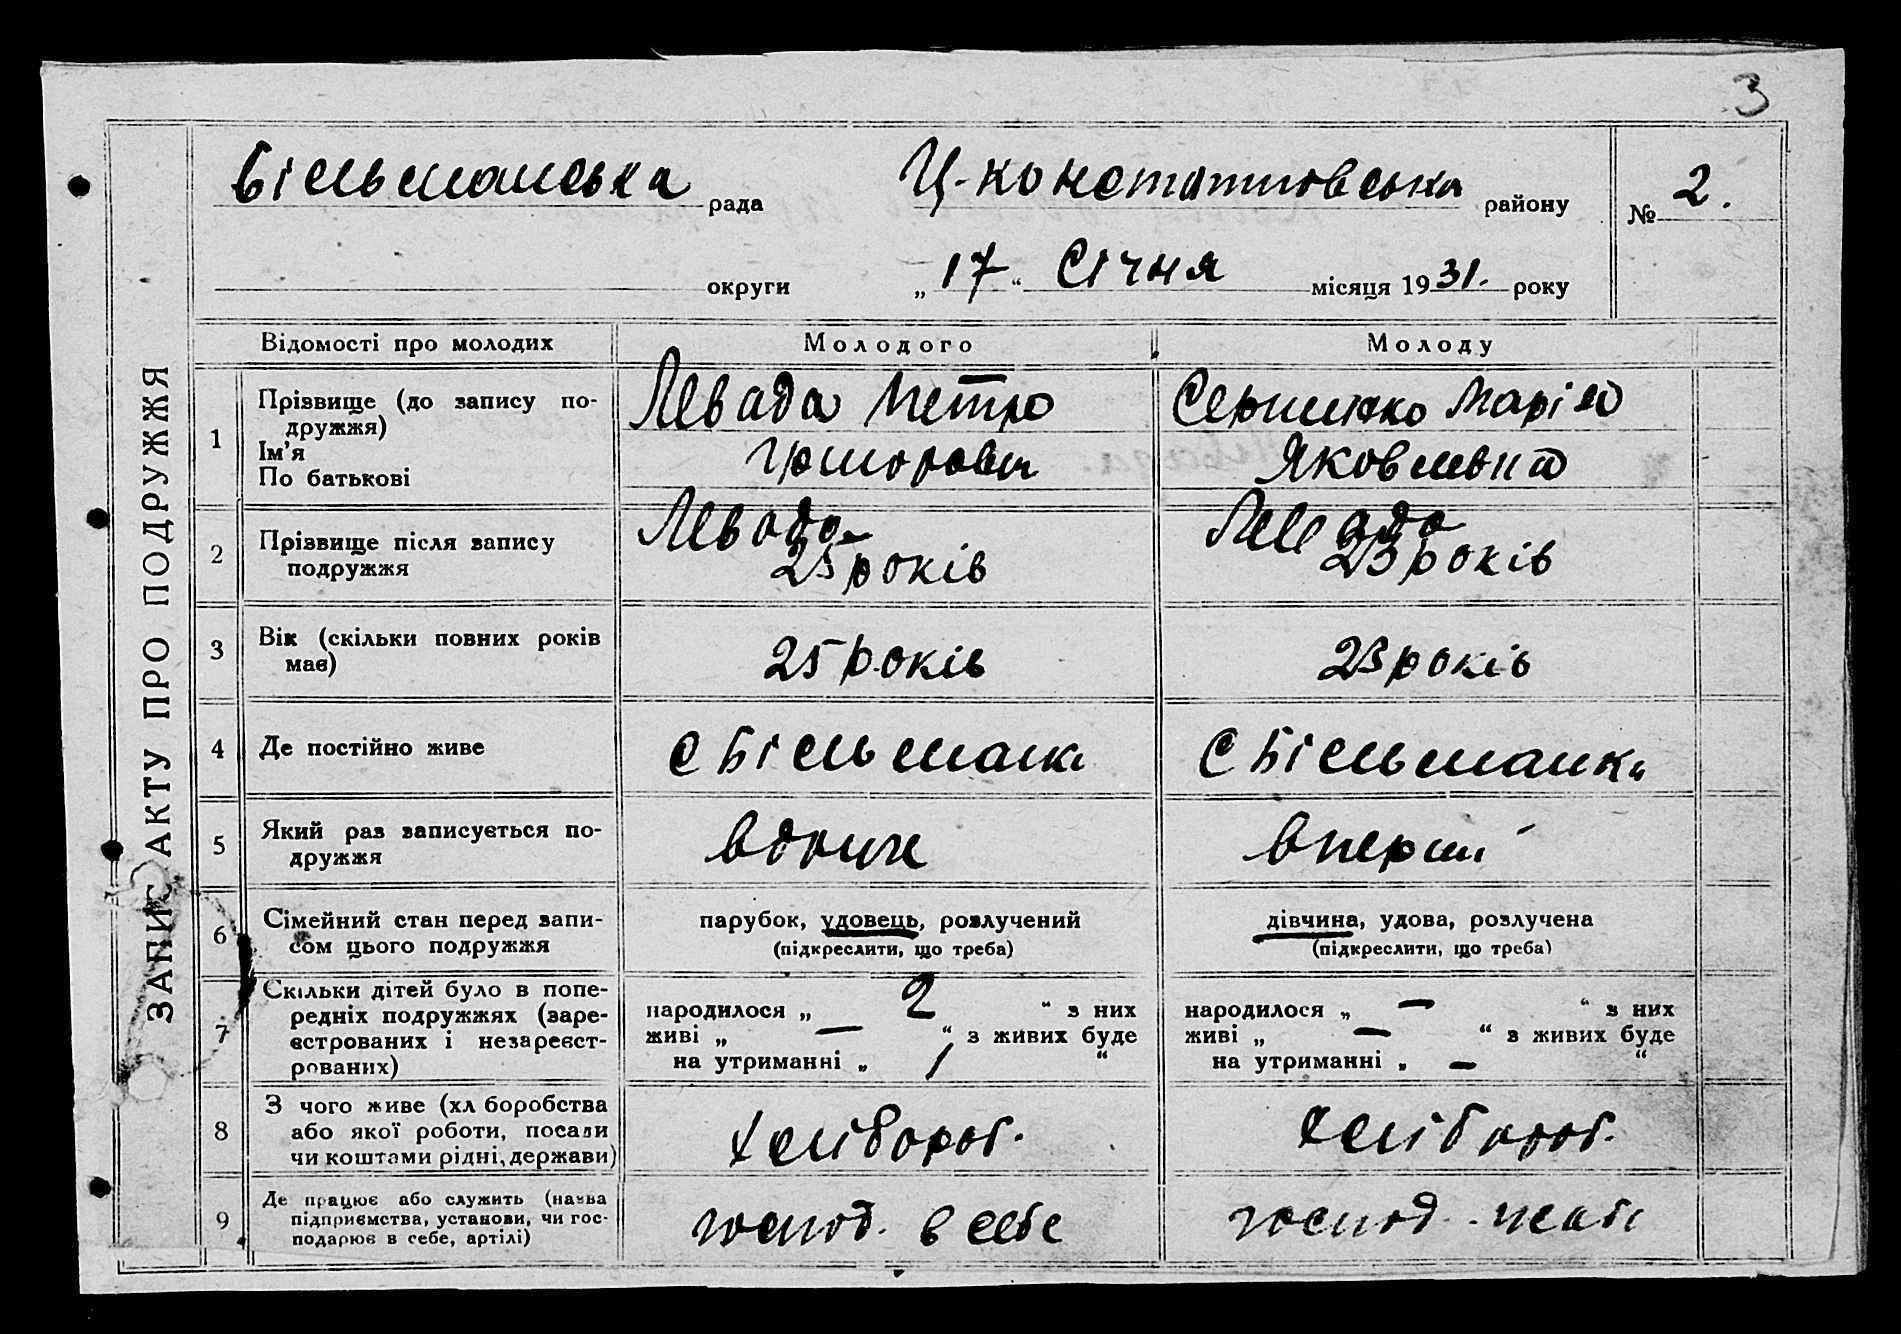 3
Більманська рада Ц-Констатиновська району № 2.
округи „17“ Січня місяця 1931. року
ЗАПИС АКТУ ПРО ПОДРУЖЖЯ
Відомості про молодих Молодого Молоду
1 Прізвище (до запису по-
дружжя)
Ім'я
По батькові
Левада Петро
Григорович
Марія
Яковлевна
2 Прізвище після запису
подружжя
Левада
25 років
Левада
23 років
3 Вік (скільки повних років
має)
25 років
23 років
4 Де постійно живе
с Більманк
с Більманка
5 Який раз записується по-
дружжя
вдруге
вперши
6 Сімейний стан перед запи-
сом цього подружжя
парубок, удовець, розлучений
(підкреслити, що треба)
дівчина, удова, розлучена
(підкреслити, що треба)
7 Скільки дітей було в попе-
редніх подружжях (заре-
єстрованих і незареєст-
рованих)
народилося „ 2 “ з них
живі „ — “ з живих буде
на утриманні „ / “
народилося „ — “ з них
живі „ — “ з живих буде
на утриманні „ — “
8 З чого живе (хл боробства
або якої роботи, посади
чи коштами рідні, держави)
хліборог.
хлібороб.
9 Де працює або служить (назва
підприємства, установи, чи гос-
подарює в себе, артілі)
господ. в себе
господ.